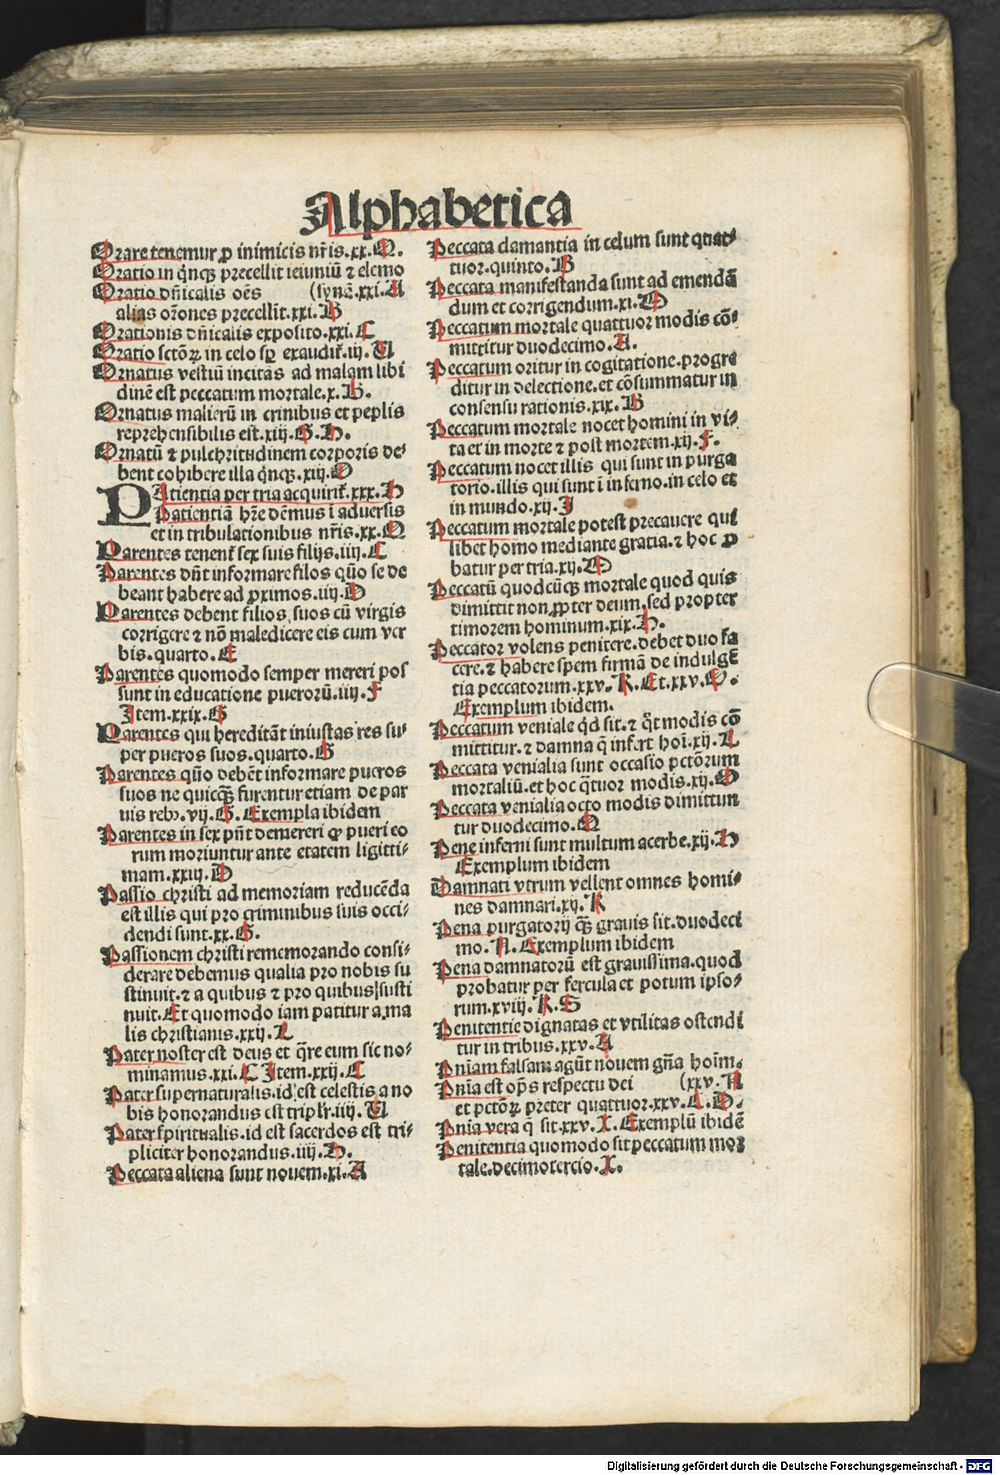 Alphabetica
Orare tenemur ꝓ inimicis nr̃is.xx.M.
Oratio in q̃ncꝫ precellit ieiuniũ ⁊ elemo
Oratio dñicalis oẽs (synã.xxi.A
alias orõnes precellit.xxi.B
Orationis dñicalis exposito.xxi.C
Oratio sctõꝝ in celo sꝑ exaudit̃.iij.U
Ornatus vestiũ incitãs ad malam libi
dinẽ est peccatum mortale.x.B.
Ornatus malierũ in crinibus et peplis
reprehensibilis est.xiij.G.H.
Ornatũ ⁊ pulchritudinem corporis de⸗
bent cohibere illa q̃ncꝫ.xiij.O
PAtientia per tria acquirit̃.xxx.H
Patientiã hr̃e dẽmus ĩ aduersis
et in tribulationibus nr̃is.xx.M
Parentes tenent̃ sex suis filijs.iiij.C
Parentes dñt informare filos qũo se de
beant habere ad ꝓximos.iiij.D
Parentes debent filios suos cũ virgis
corrigere ⁊ nõ maledicere eis cum ver
bis.quarto.E
Parentes quomodo semper mereri pos
sunt in educatione puerorũ.iiij.F
Item.xxix.G
Parentes qui hereditãt iniustas res su⸗
per pueros suos.quarto.G
Parentes qũo debẽt informare pueros
suos ne quicq̃ꝫ furentur etiam de par
uis rebꝰ.vij.G.Exempla ibidem
Parentes in sex pñt demereri ꝙ pueri eo
rum moriuntur ante etatem ligitti⸗
mam.xxiij.D
Passio christi ad memoriam reducẽda
est illis qui pro criminibus suis occi⸗
dendi sunt.xx.G.
Passionem christi rememorando consi⸗
derare debemus qualia pro nobis su
stinuit.⁊ a quibus ⁊ pro quibus susti
nuit.Et quomodo iam patitur a ma
lis christianis.xxij.L
Pater noster est deus et q̃re eum sic no⸗
minamus.xxi.C Item.xxij.C
Pater supernaturalis.id est celestis a no
bis honorandus est triplr̃.iiij.U
Pater spiritualis.id est sacerdos est tri⸗
pliciter honorandus.iiij.D.
Peccata aliena sunt nouem.xi.A
Peccata damantia in celum sunt quat⸗
tuor.quinto.B
Peccata manifestanda sunt ad emendã
dum et corrigendum.xi.D
Peccatum mortale quattuor modis cõ⸗
mittitur duodecimo.A.
Peccatum oritur in cogitatione.progre
ditur in delectione.et cõsummatur in
consensu rationis.xix.B
Peccatum mortale nocet homini in vi⸗
ta et in morte ⁊ post mortem.xij.F.
Peccatum nocet illis qui sunt in purga
torio.illis qui sunt ĩ inferno.in celo et
in mundo.xij.I
Peccatum mortale potest precauere qui
libet homo mediante gratia.⁊ hoc ꝓ
batur per tria.xij.D
Peccatũ quodcũqꝫ mortale quod quis
dimittit non ꝓpter deum.sed propter
timorem hominum.xix.H.
Peccator volens penitere.debet duo fa
cere.⁊ habere spem firmã de indulgẽ
tia peccatorum.xxv.R.Et.xxv.O.
Exemplum ibidem.
Peccatum veniale qd̃ sit.⁊ q̃t modis cõ
mittitur.⁊ damna q̃ infert hoĩ.xij.L
Peccata venialia sunt occasio pctõrum
mortaliũ.et hoc q̃tuor modis.xij.M
Peccata venialia octo modis dimittun
tur duodecimo.M
Pene inferni sunt multum acerbe.xij.H
Exemplum ibidem
Damnati vtrum vellent omnes homi⸗
nes damnari.xij.R
Pena purgatorij q̃ꝫ grauis sit.duodeci
mo.N.Exemplum ibidem
Pena damnatorũ est grauissima.quod
probatur per fercula et potum ipso⸗
rum.xviij.R.S
Penitentie dignatas et vtilitas ostendi
tur in tribus.xxv.A
Pniam falsam agũt nouem gña hoĩm.
Pnia est opꝰs respectu dei (xxv.N
et pctõꝝ preter quattuor.xxv.C.D.
Pnia vera q̃ sit.xxv.X.Exemplũ ibidẽ
Penitentia quomodo sit peccatum mor
tale.decimotercio.X.
Digitalisierung gefördert durch die Deutsche Forschungsgemeinschaft - DFG